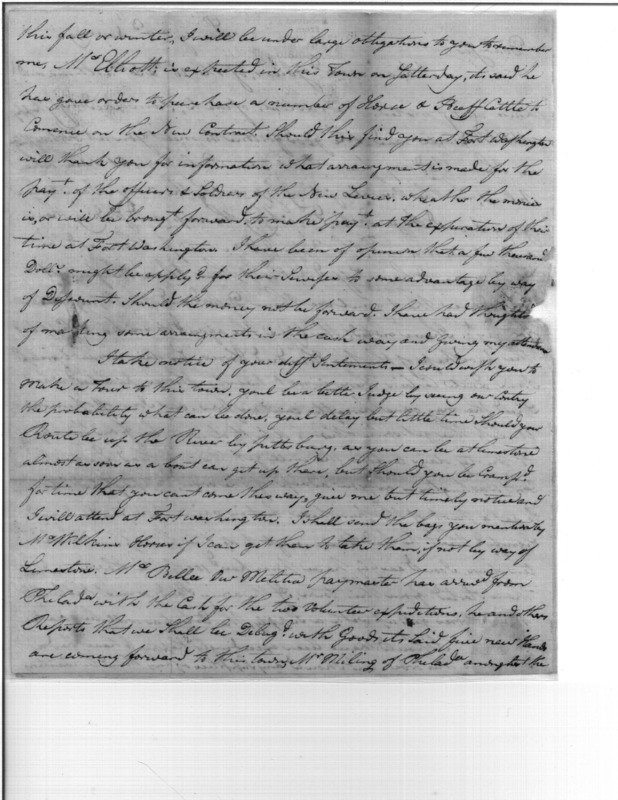 this fall or winter, I will be under large obligations to you to remember
me, Mr Elliott is expected in this Town on Satterday, its said he
has gave orders to purchase a number of Horses & Beeff Cattle to
Comence on the New Contract. Should this find you at Fort Washington
will thank you for information what arrangment is made for the
pay.t of the officers & Soldiers of the New Levies, wheather the monies
is, or will be broug.t forward, to make pay.t at the expiration of their
time at Fort Washington. I have been of opinion that a few thousand
Doll.s might be apply.d for their to some advantage by way
of Discount. Should the money not be forward. I have had thoughts
of making some arrangements in the cash way and giving my attention
I take notice of your diff.t Intements — I could wish you to
make a Tour to this town, youl be a better Judge by seeing our Contry
the probibility what can be done, youl delay but little time Should your
Route be up the River by pittsburg, as you can be at limestone
almost as soon as a boat can get up there, but Should you be Cramp.d
for time that you cant come this way, give me but timely notice and
I will attend at Fort washington. I shall send the bags you mention by
Mr Wilkins Horses if I can get them to take them, if not by way of
Limestone. Mr Bellee Our Melitia paymaster has arriv.d from
Philad.a with the Cash for the two Volunteer expeditions, he and others
Reports that we Shall be Delug.d with Goods its Said five new Hands
are coming forward to this town, Mr Miling of Philad.a amongst the